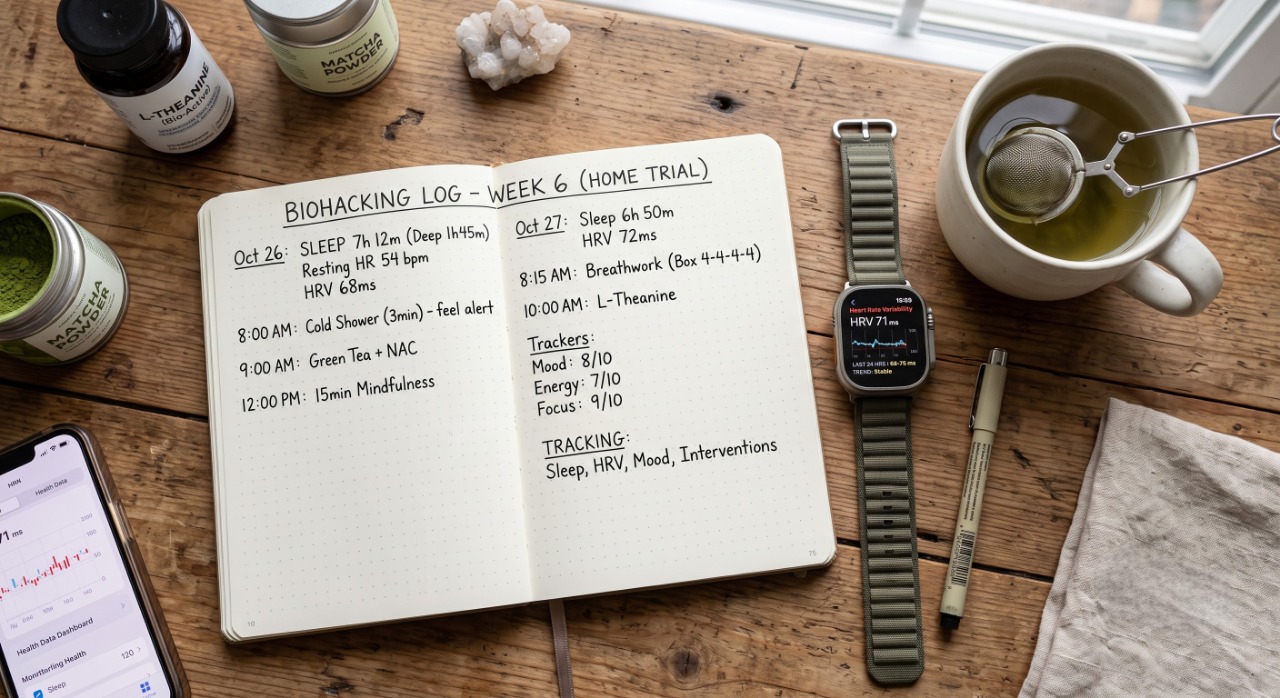 L-THEANINE
(Bio-Active)
MATCHA
POWDER
MATCHA
POWDER
BIOHACKING LOG – WEEK 6 (HOME TRIAL)
Oct 26: SLEEP 7h 12m (Deep 1h45m)
Resting HR 54 bpm
HRV 68ms
8:00 AM: Cold Shower (3min) – feel alert
9:00 AM: Green Tea + NAC
12:00 PM: 15min Mindfulness
10
Oct 27: Sleep 6h 50m
HRV 72ms
8:15 AM: Breathwork (Box 4-4-4-4)
10:00 AM: L-Theanine
Trackers:
Mood: 8/10
Energy: 7/10
Focus: 9/10
TRACKING:
Sleep, HRV, Mood, Interventions
75
Heart Rate Variability
HRV 71 ms
LAST 24 HRS | 68-75 ms
TREND: Stable
HRN
Health Data
71 ms
Health Data Dashboard
Health
120
Sleep